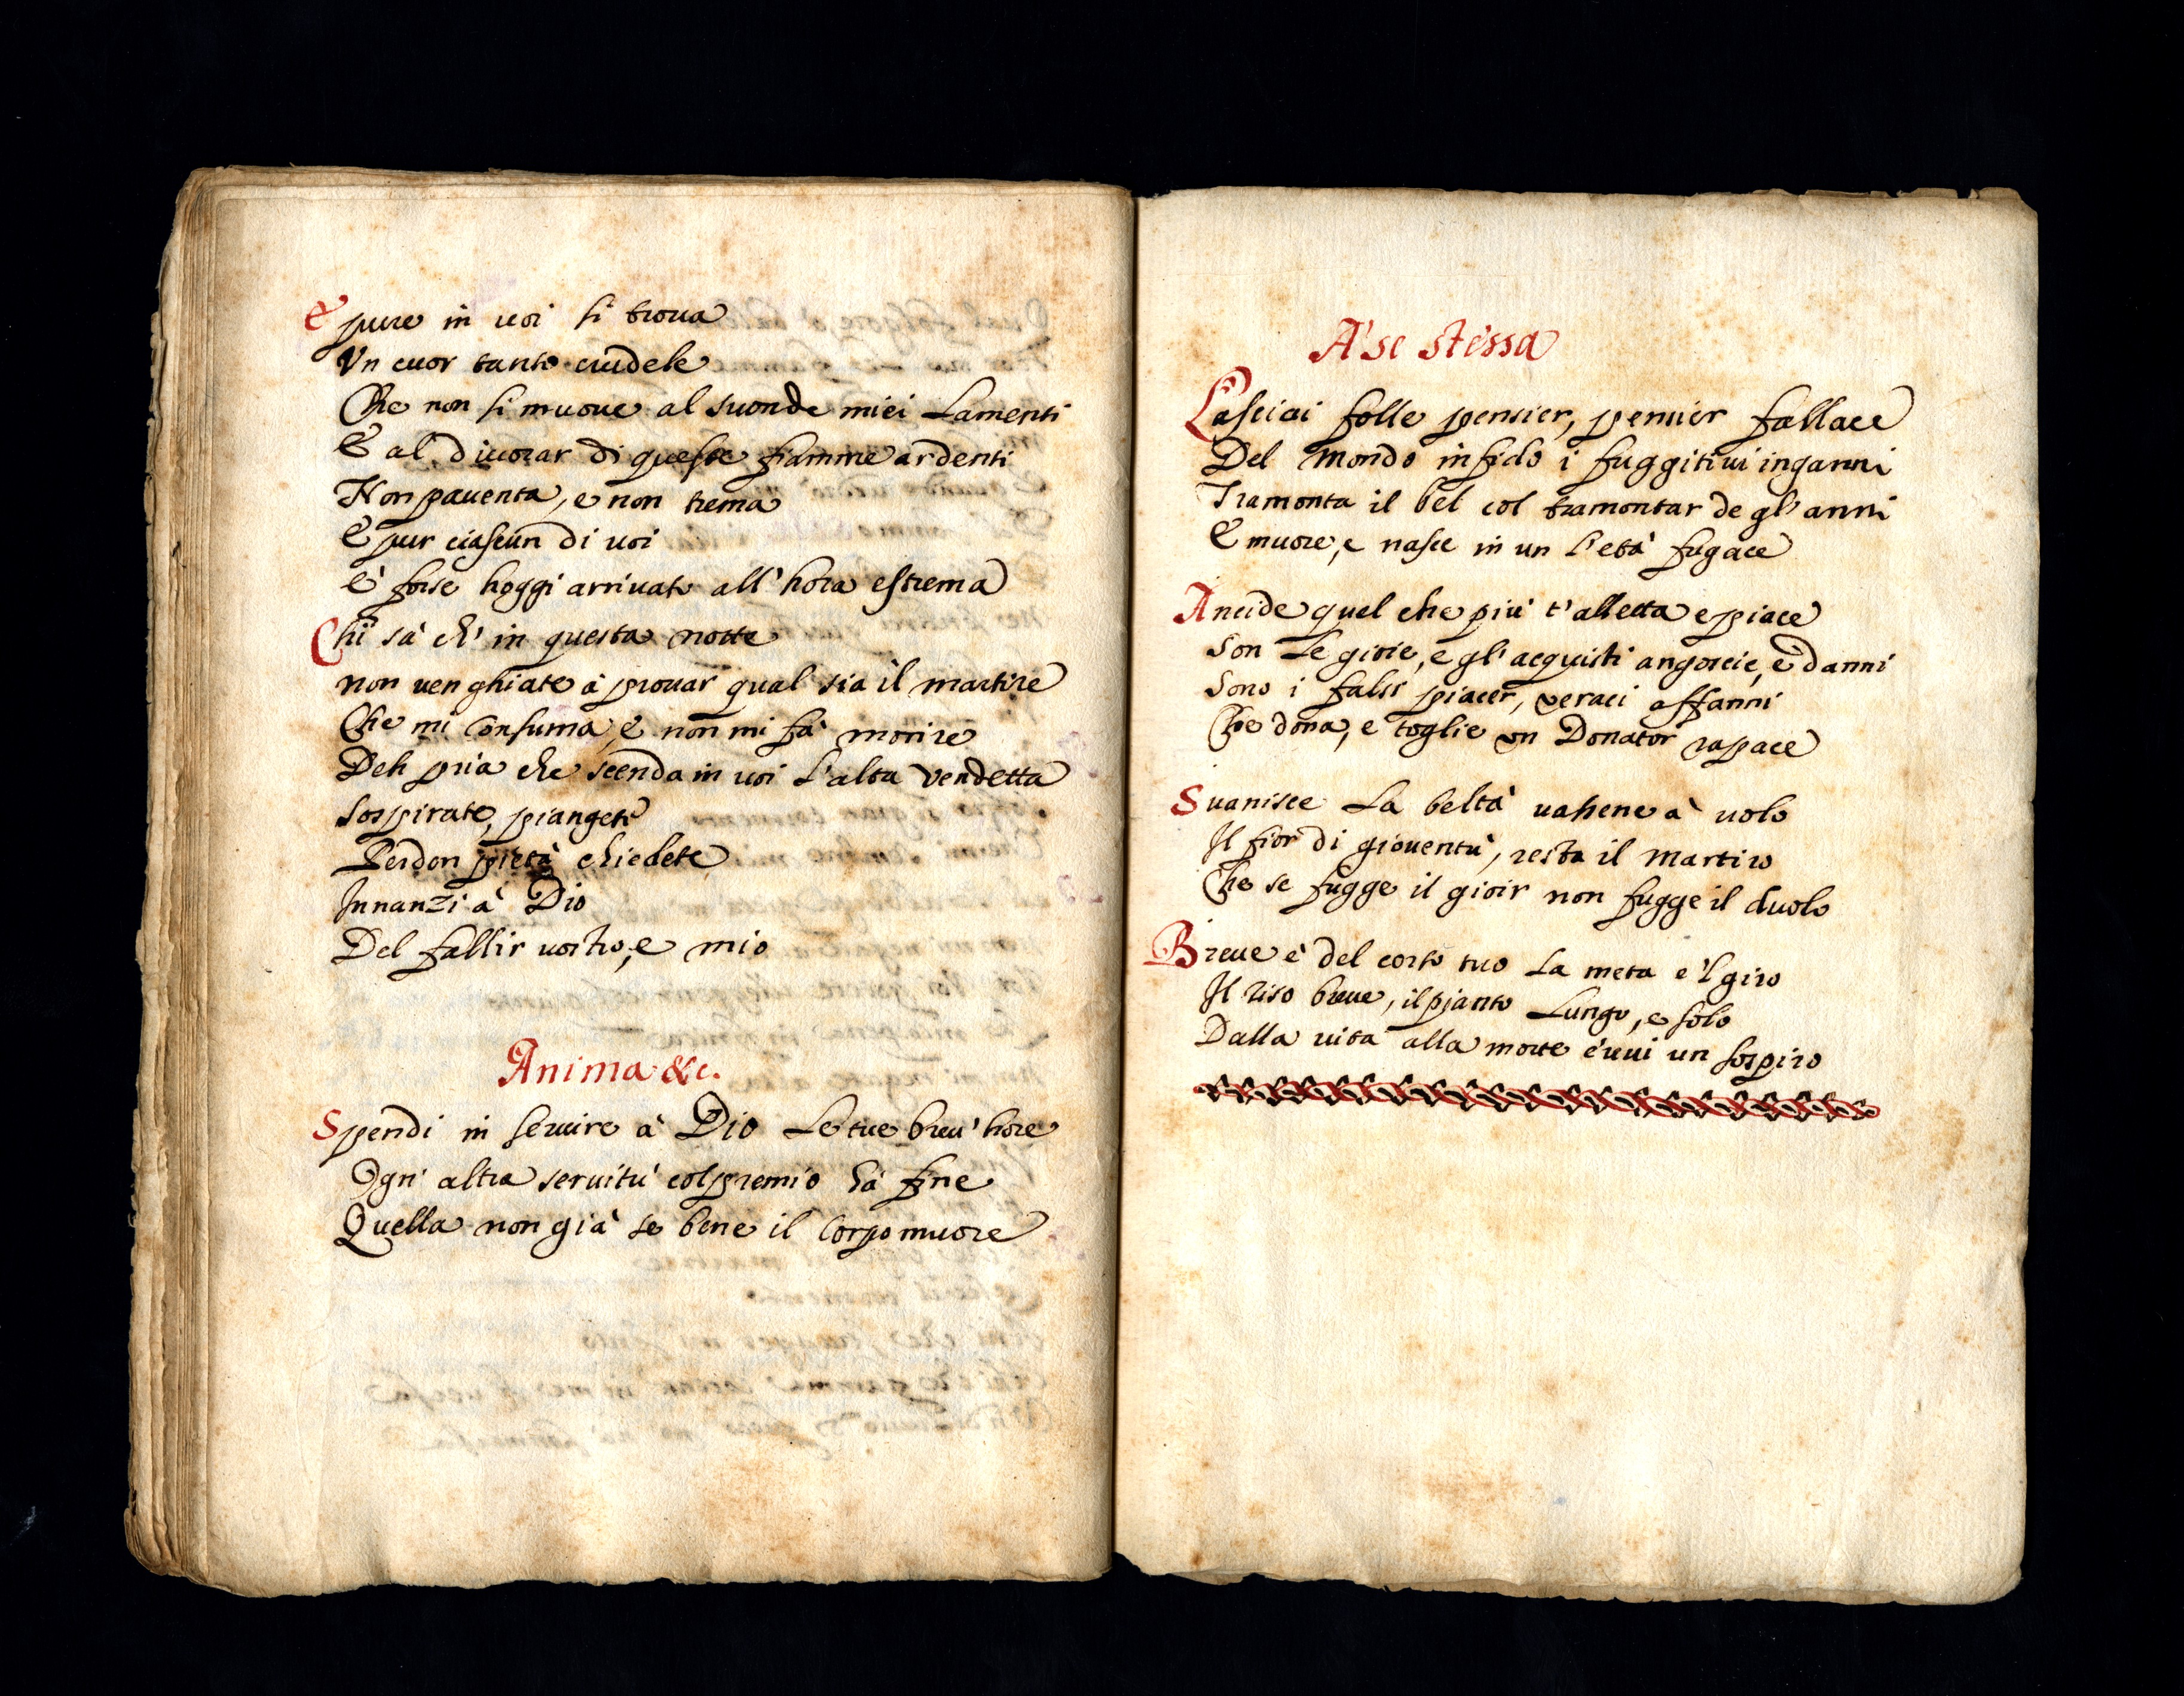 E pure in uoi si troua
Vn cuor tanto crudele
Che non si muoue al suon de miei Lamenti
E al diuorar di queste fiamme ardenti
Non pauenta, e non trema
E pur ciascun di uoi
è forse hoggi arriuato all'hora estrema
Chi sà ch' in questa notte
non uenghiate à prouar qual sia il martire
Che mi Consuma, e non mi fà morire
Deh pria che scenda in uoi L'alta vendetta
Sospirate, piangete
Perdon pietà chiedete
Innanzi à Dio
Del fallir uostro, e mio
Anima &c.
Spendi in seruire à Dio Le tue breu' hore
Ogn' altra seruitù col premio hà fine
Quella non già se bene il Corpo muore
A' se stessa
Lascia i folle pensier, pensier fallace
Del Mondo infido i fuggitiui inganni
Tramonta il bel col tramontar de gl' anni
E muore, e nasce in un l'età fugace
Ancide quel che più t'alletta e piace
Son Le gioie, e gl' acquisti angoscie, e danni
Sono i falsi piacer, veraci affanni
Che dona, e toglie un Donator rapace
Suanisce La beltà uassene à uolo
Il fior di giouentù, resta il martiro
Che se fugge il gioir non fugge il duolo
Breue è del corso tuo La meta e 'l giro
Il riso breue, il pianto Lungo, e solo
Dalla uita alla morte èuui un sospiro